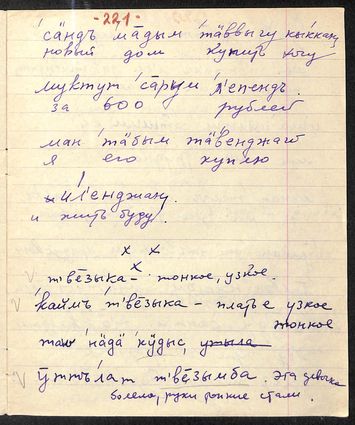 -221-
сӓндъ мӓдым тӓввыгу кыккаӊ
новый дом купить хочу
муктут сӓрум л'епендъ.
за 600 рублей
ман тӓбым тӓвенджаӊ
я его куплю
ил'енджаӊ.
и жить буду.
тве̄зыка – тонкое, узкое.
каймъ т'ве̄зыка – платье узкое
тонкое
тав нӓдӓ кӱдыс,
ӱттълат т'ве̄зымба. эта девочка
болела, руки тонкие стали.